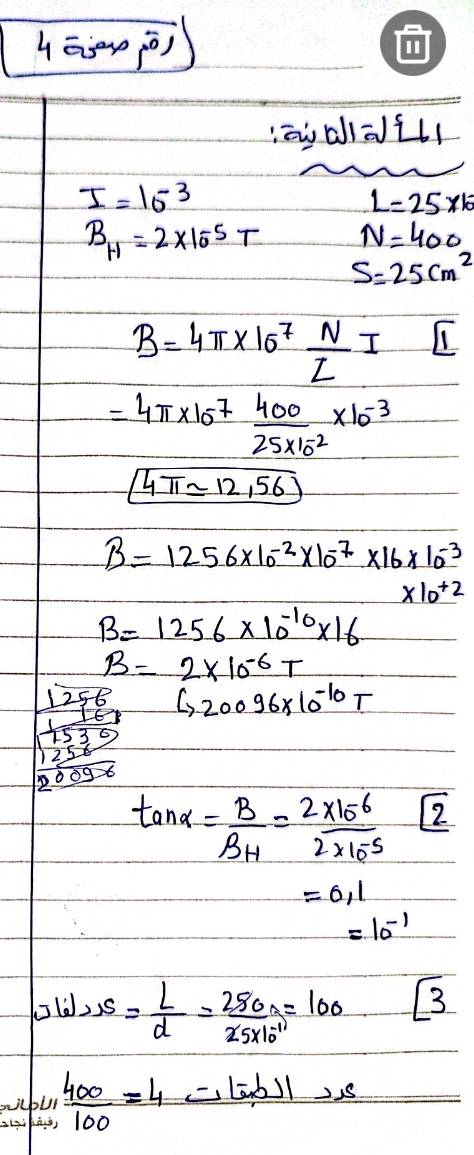 رقم صفحة 4
المسألة الثانية:
I = 10⁻³
L = 25 × 10
B_H = 2 × 10⁻⁵ T
N = 400
S = 25 Cm²
1
B = 4π × 10⁻⁷ N/L I
= 4π × 10⁻⁷ 400/25×10⁻² × 10⁻³
4π ≃ 12,56
B = 1256 × 10⁻² × 10⁻⁷ × 16 × 10⁻³
× 10⁺²
B = 1256 × 10⁻¹⁰ × 16
B = 2 × 10⁻⁶ T
↳ 20096 × 10⁻¹⁰ T
1256
16
7536
1256
20096
2
tanα = B/B_H = 2×10⁻⁶/2×10⁻⁵
= 0,1
= 10⁻¹
3
عدد لفات = L/d = 250/25×10⁻¹ = 100
عدد الطبقات = 400/100 = 4
الأماني
رفيقة نجاح